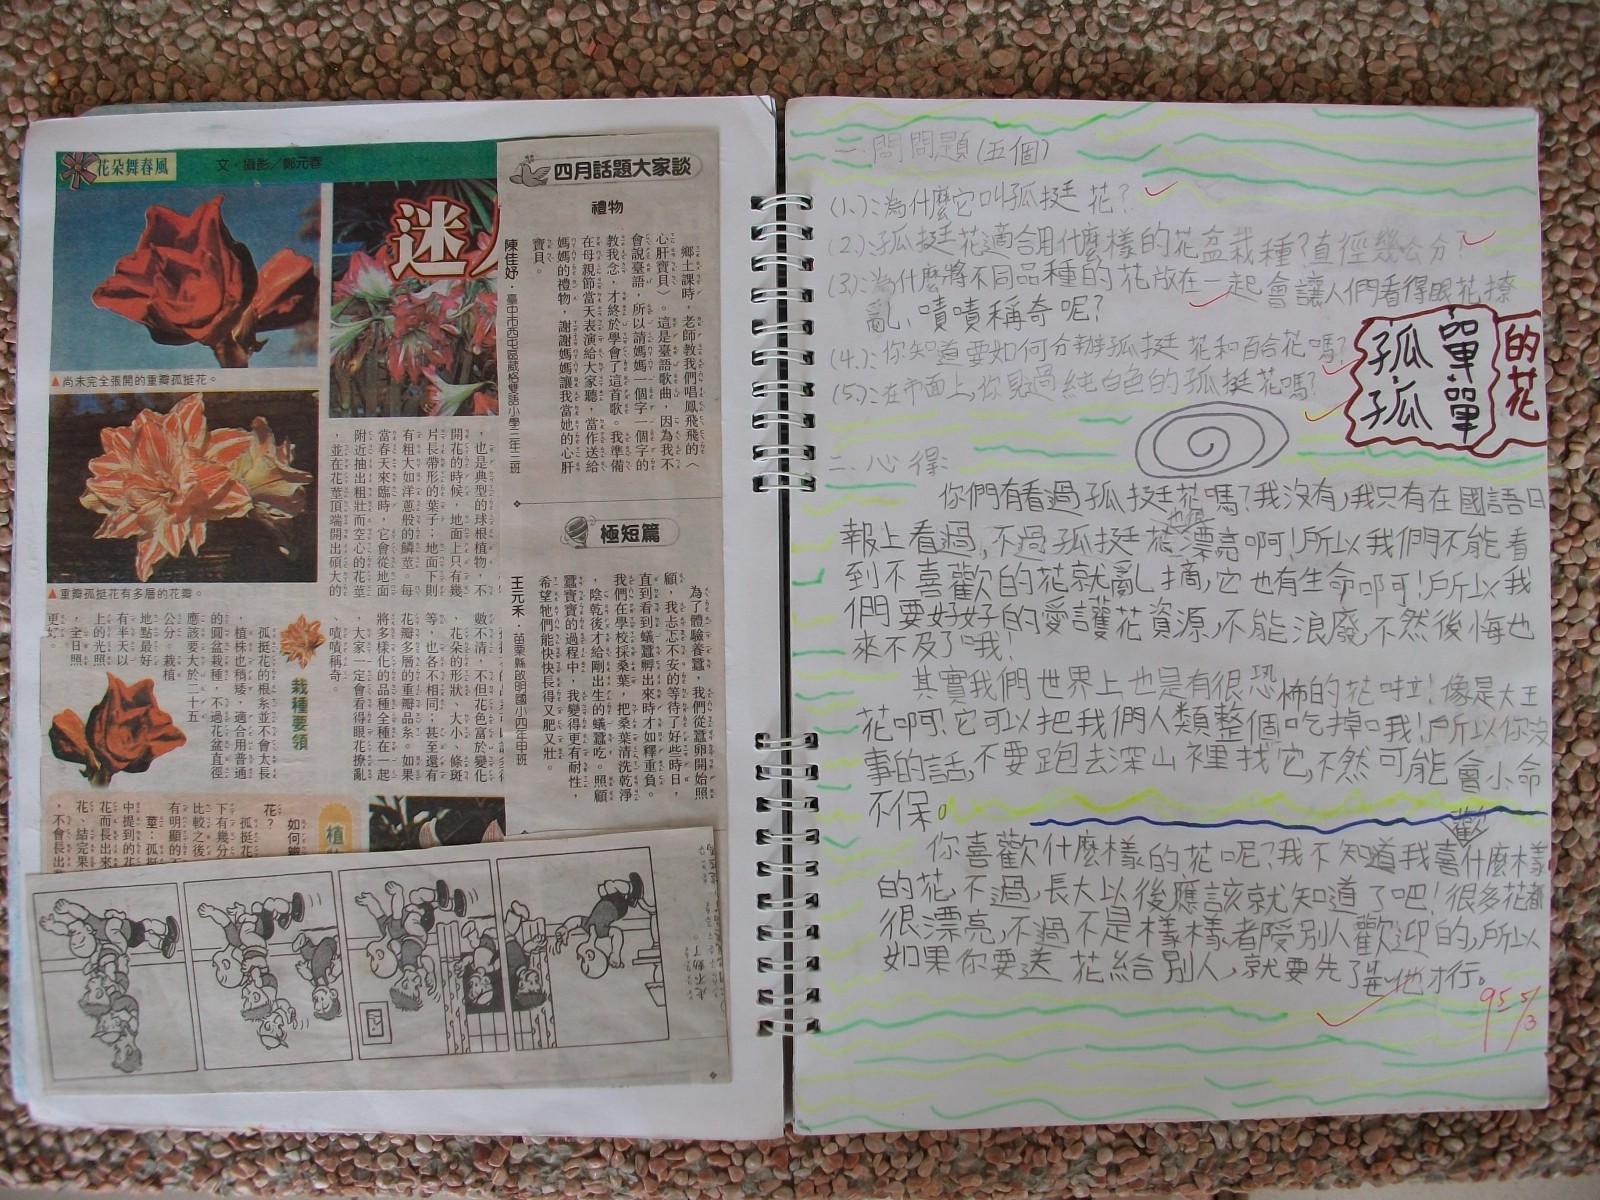 花朵舞春風
文·攝影／鄭元春
迷
▲尚未完全張開的重瓣孤挺花。
▲重瓣孤挺花有多層的花瓣。
，也是典型的球根植物，不
開花的時候，地面上只有幾
片長帶形的葉子；地面下則
有粗大如洋蔥般的鱗莖。每
當春天來臨時，它會從地面
附近抽出粗壯而空心的花莖
，並在花莖頂端開出碩大的
數不清，不但花色富於變化
、花朵的形狀、大小、條斑
等，也各不相同；甚至還有
花瓣多層的重瓣品系。如果
將多樣化的品種全種在一起
，大家一定會看得眼花撩亂
、嘖嘖稱奇。
栽種要領
孤挺花的根系並不會太長
，植株也稍矮，適合用普通
的圓盆栽種，不過花盆直徑
應該要大於二十五
公分。栽植
地點最好
有半天以
上的光照
，全日照
更好。
如何
花？
孤挺花
下有幾分
比較之後
有明顯的
莖：孤挺
中提到的花
花而長出來
花、結完果
，不會長出
四月話題大家談
禮物
鄉土課時，老師教我們唱鳳飛飛的〈
心肝寶貝〉。這是臺語歌曲，因為我不
會說臺語，所以請媽媽一個字一個字的
教我念，才終於學會了這首歌。我準備
在母親節當天表演給大家聽，當作送給
媽媽的禮物，謝謝媽媽讓我當她的心肝
寶貝。
陳佳妤·臺中市西屯區葳格雙語小學二年三班
極短篇
為了體驗養蠶，我們從蠶卵開始照
顧，我忐忑不安的等待了好些時日，
直到看到蟻蠶孵出來時才如釋重負。
我們在學校採桑葉，把桑葉清洗乾淨
，陰乾後才給剛出生的蟻蠶吃。照顧
蠶寶寶的過程中，我變得更有耐性，
希望牠們能快快長得又肥又壯。
王元禾·苗栗縣啟明國小四年甲班
走不動了
二、問問題(五個)
(1.):為什麼它叫孤挺花?
(2.):孤挺花適合用什麼樣的花盆栽種?直徑幾公分?
(3.):為什麼將不同品種的花放在一起會讓人們看得眼花撩
亂、嘖嘖稱奇呢?
(4.):你知道要如何分辦孤挺花和百合花嗎?
(5.):在市面上,你見過純白色的孤挺花嗎?
孤孤單單的花
二、心得:
你們有看過孤挺花嗎?我沒有,我只有在國語日
報上看過,不過孤挺花也很漂亮啊!所以我們不能看
到不喜歡的花就亂摘,它也有生命叩可!所以我
們要好好的愛護花資源,不能浪廢,不然後悔也
來不及了哦!
其實我們世界上也是有很恐怖的花啦!像是大王
花叩可!它可以把我們人類整個吃掉哦!所以你沒
事的話,不要跑去深山裡找它,不然可能會小命
不保。
你喜歡什麼樣的花呢?我不知道我喜歡什麼樣
的花,不過,長大以後應該就知道了吧!很多花都
很漂亮,不過不是樣樣者陾別人歡迎的,所以
如果你要送花給別人,就要先了是他才行。
95 5/3